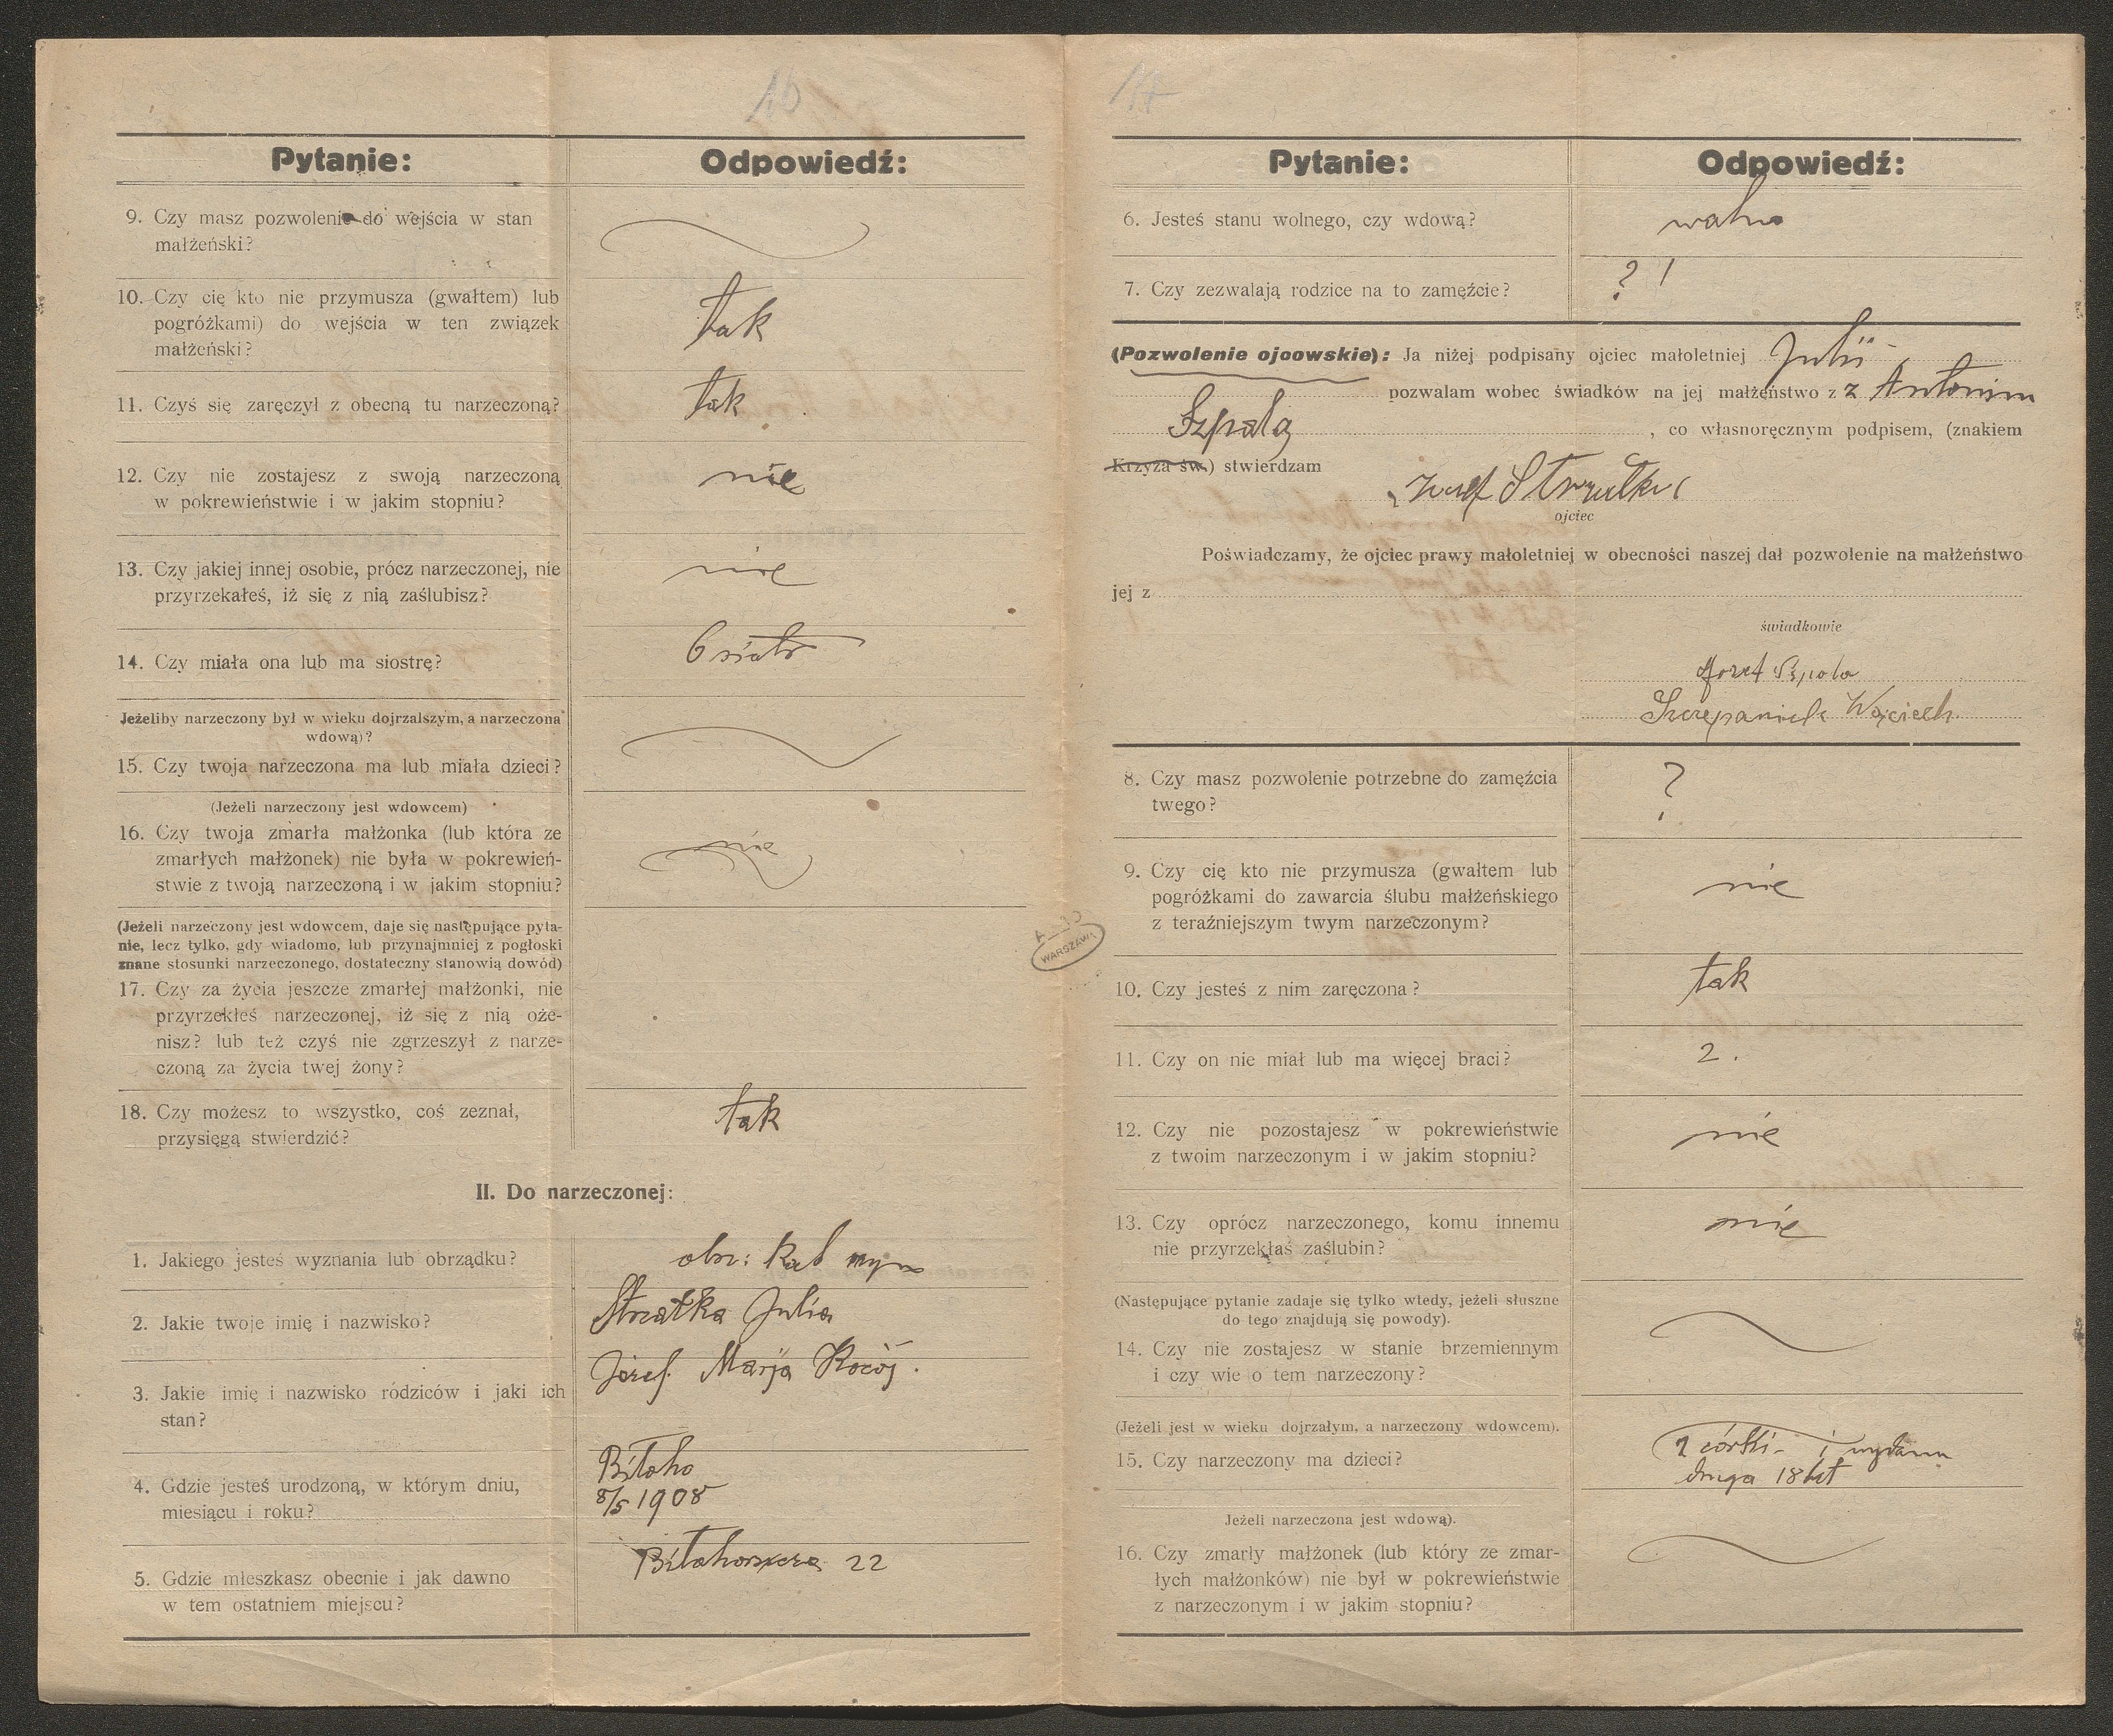 16
Pytanie:
Odpowiedź:
9. Czy masz pozwolenie do wejścia w stan
małżeński?
10. Czy cię kto nie przymusza (gwałtem) lub
pogróżkami) do wejścia w ten związek
małżeński?
tak
11. Czyś się zaręczył z obecną tu narzeczoną?
tak
12. Czy nie zostajesz z swoją narzeczoną
w pokrewieństwie i w jakim stopniu?
nie
13. Czy jakiej innej osobie, prócz narzeczonej, nie
przyrzekałeś, iż się z nią zaślubisz?
nie
14. Czy miała ona lub ma siostrę?
6 sióstr
Jeżeliby narzeczony był w wieku dojrzalszym, a narzeczona
wdową)?
15. Czy twoja narzeczona ma lub miała dzieci?
(Jeżeli narzeczony jest wdowcem)
16. Czy twoja zmarła małżonka (lub która ze
zmarłych małżonek) nie była w pokrewień-
stwie z twoją narzeczoną i w jakim stopniu?
nie
(Jeżeli narzeczony jest wdowcem, daje się następujące pyta-
nie, lecz tylko, gdy wiadome, lub przynajmniej z pogłoski
znane stosunki narzeczonego, dostateczny stanowią dowód)
17. Czy za życia jeszcze zmarłej małżonki, nie
przyrzekłeś narzeczonej, iż się z nią oże-
nisz? lub też czyś nie zgrzeszył z narze-
czoną za życia twej żony?
18. Czy możesz to wszystko, coś zeznał,
przysięgą stwierdzić?
tak
II. Do narzeczonej:
1. Jakiego jesteś wyznania lub obrządku?
obrz:
2. Jakie twoje imię i nazwisko?
Strzałka Julia
3. Jakie imię i nazwisko rodziców i jaki ich
stan?
Józef. Marja Kocój.
4. Gdzie jesteś urodzoną, w którym dniu,
miesiącu i roku?
Biłoho
8/5 1908
5. Gdzie mieszkasz obecnie i jak dawno
w tem ostatniem miejscu?
22
WARSZAWA
17
Pytanie:
Odpowiedź:
6. Jesteś stanu wolnego, czy wdową?
wolna
7. Czy zezwalają rodzice na to zamęźcie?
? !
(Pozwolenie ojcowskie): Ja niżej podpisany ojciec małoletniej Julii
pozwalam wobec świadków na jej małżeństwo z z Antonim
Szpalą , co własnoręcznym podpisem, (znakiem
Krzyża św.) stwierdzam
Józef Strzałka
ojciec
Poświadczamy, że ojciec prawy małoletniej w obecności naszej dał pozwolenie na małżeństwo
jej z
świadkowie
Józef Szpala
Szczepaniak Wojciech
8. Czy masz pozwolenie potrzebne do zamęźcia
twego?
?
9. Czy cię kto nie przymusza (gwałtem lub
pogróżkami do zawarcia ślubu małżeńskiego
z teraźniejszym twym narzeczonym?
nie
10. Czy jesteś z nim zaręczona?
tak
11. Czy on nie miał lub ma więcej braci?
2.
12. Czy nie pozostajesz w pokrewieństwie
z twoim narzeczonym i w jakim stopniu?
nie
13. Czy oprócz narzeczonego, komu innemu
nie przyrzekłaś zaślubin?
nie
(Następujące pytanie zadaje się tylko wtedy, jeżeli słuszne
do tego znajdują się powody).
14. Czy nie zostajesz w stanie brzemiennym
i czy wie o tem narzeczony?
(Jeżeli jest w wieku dojrzałym, a narzeczony wdowcem).
15. Czy narzeczony ma dzieci?
2 córki - 1 wydana
druga 18 lat
Jeżeli narzeczona jest wdową).
16. Czy zmarły małżonek (lub który ze zmar-
łych małżonków) nie był w pokrewieństwie
z narzeczonym i w jakim stopniu?